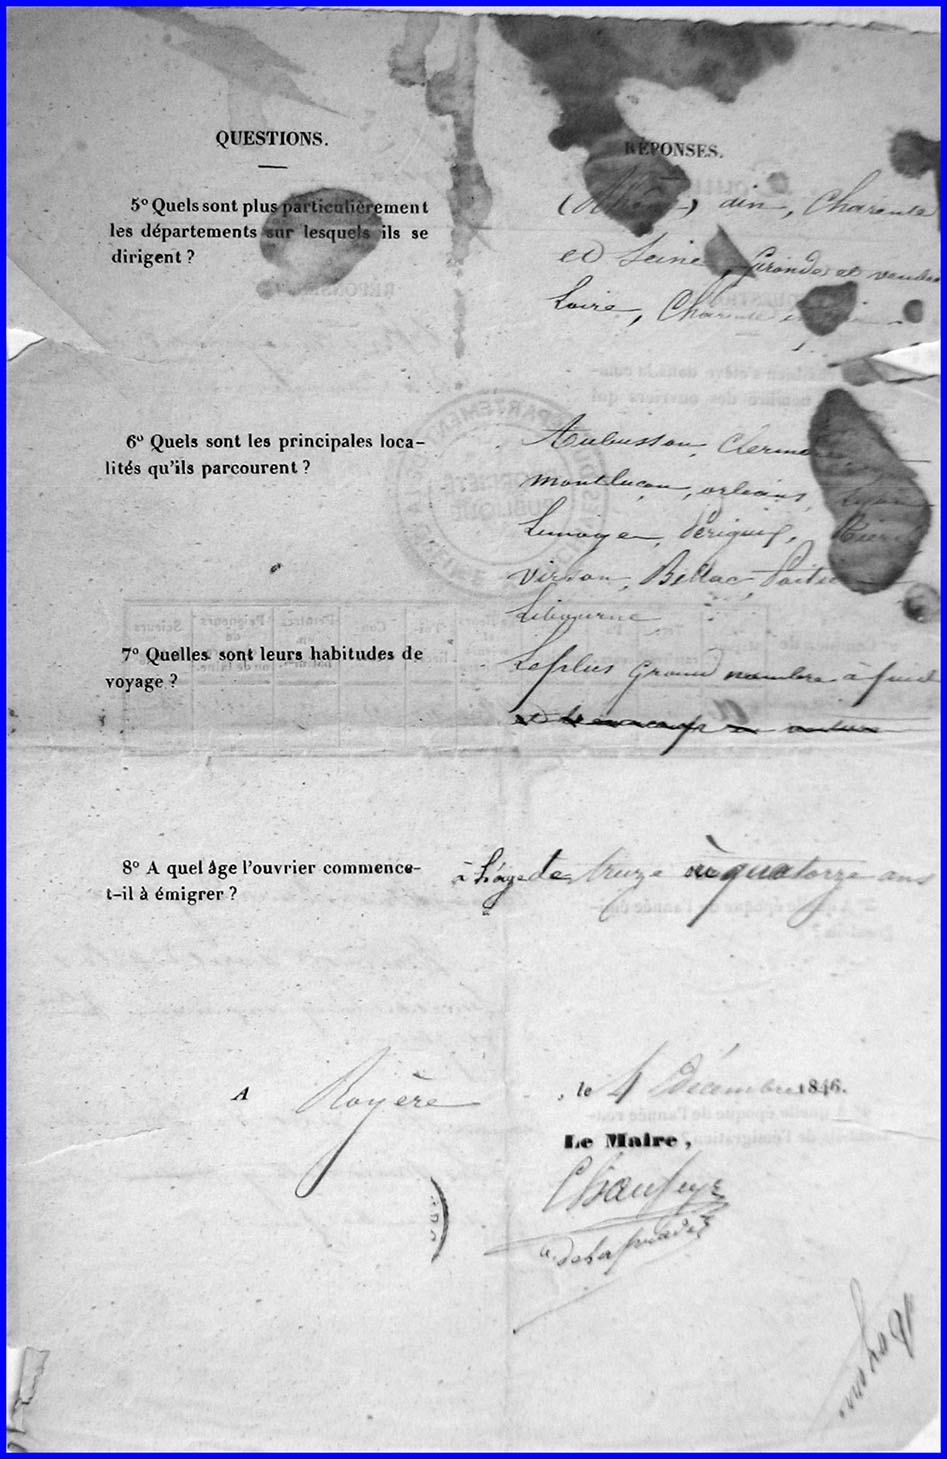 QUESTIONS.
RÉPONSES.
5º Quels sont plus particulièrement
les départements sur lesquels ils se
dirigent ?
(Rhône) ain, Charente
et Seine, Gironde et vendée
Loire, Charente
6º Quels sont les principales loca-
lités qu'ils parcourent ?
Aubusson, Clermont
montluçon, orléans, Lyon
Limoges, Périgueux,
vierzon, Bellac, Poitiers
Libourne
7º Quelles sont leurs habitudes de
voyage ?
Le plus grand nombre à pied
et beaucoup en voiture
8º A quel âge l'ouvrier commence-
t-il à émigrer ?
à l'âge de treize à quatorze ans
A Royère , le 4 Décembre 1846.
Le Maire,